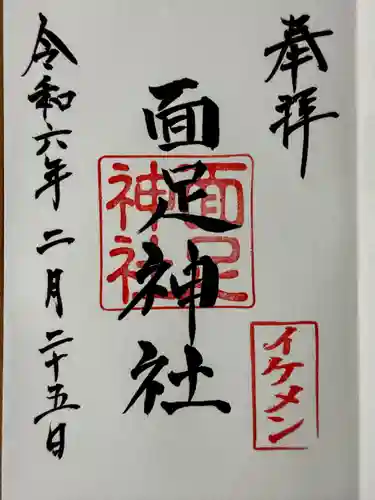 奉拝
イケメン
面足神社
面足神社
令和六年二月二十五日